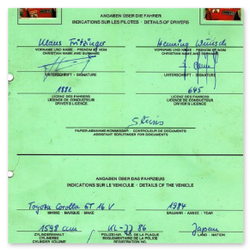 ANGABEN ÜBER DIE FAHRER
INDICATIONS SUR LES PILOTES - DETAILS OF DRIVERS
Klaus Fritzinger Henning Wünsch
VORNAME UND NAME - PRENOM ET NOM VORNAME UND NAME - PRENOM ET NOM
CHRISTIAN NAME AND SURNAME CHRISTIAN NAME AND SURNAME
UNTERSCHRIFT - SIGNATURE UNTERSCHRIFT - SIGNATURE
645
LIZENZ DES FAHRERS LIZENZ DES FAHRERS
LICENCE DE CONDUCTEUR LICENCE DE CONDUCTEUR
DRIVER'S LICENCE DRIVER'S LICENCE
PAPIERABNAHME-KOMMISSAR - CONTROLEUR DE DOCUMENTS
ASSISTANT SCRUTINEER (DOCUMENTS)
ANGABEN ÜBER DAS FAHRZEUG
INDICATIONS SUR LE VEHICULE - DETAILS OF THE VEHICLE
Toyota Corolla GT 16 V 1984
MARKE - MARQUE - MAKE BAUJAHR - ANNEE - YEAR
1598 ccm KL-JJ 86 Japan
ZYLINDERINHALT POLIZEIL. KENNZEICHEN LAND
CYLINDREE PLAQUE DE POLICE NATION